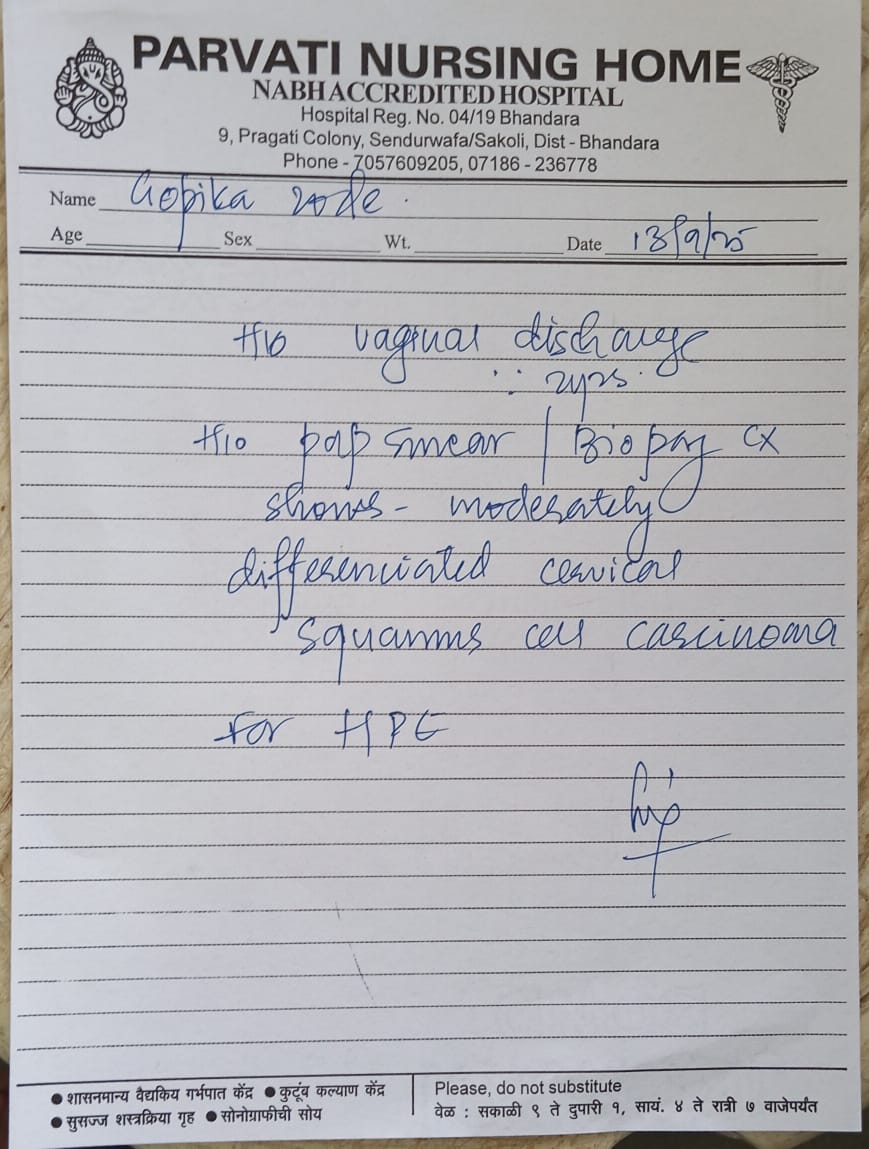 PARVATI NURSING HOME
NABH ACCREDITED HOSPITAL
Hospital Reg. No. 04/19 Bhandara
9, Pragati Colony, Sendurwafa/Sakoli, Dist - Bhandara
Phone - 7057609205, 07186 - 236778
Name Gopika rode.
Age Sex Wt. Date 13/9/25
H/o vaginal discharge
∵ 2yrs.
H/o pap smear / Biopsy CX
shows - moderately
differenciated cervical
squamms cell carcinoma
for HPE
● शासनमान्य वैद्यकिय गर्भपात केंद्र ● कुटूंब कल्याण केंद्र
● सुसज्ज शस्त्रक्रिया गृह ● सोनोग्राफीची सोय
Please, do not substitute
वेळ : सकाळी ९ ते दुपारी १, सायं. ४ ते रात्री ७ वाजेपर्यंत